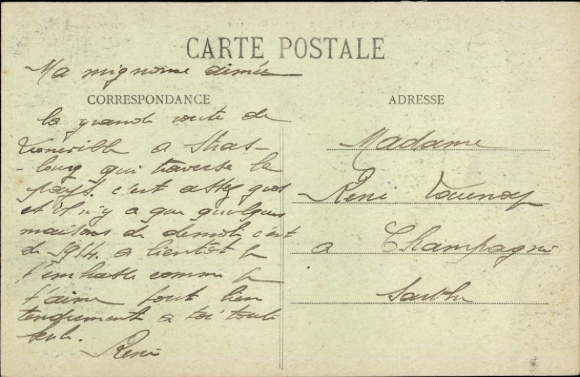 CARTE POSTALE
Ma mignonne aimée
CORRESPONDANCE
ADRESSE
la grande route de
a Stras-
bourg qui traverse le
pays. c'est assez gros
et il n'y a que quelques
maisons de demoli, c'est
de 1914. a bientôt je
comme je
t'aime tout bien
tendrement a toi toute
seule.
René
Madame
René
a Champagné
Sarthe